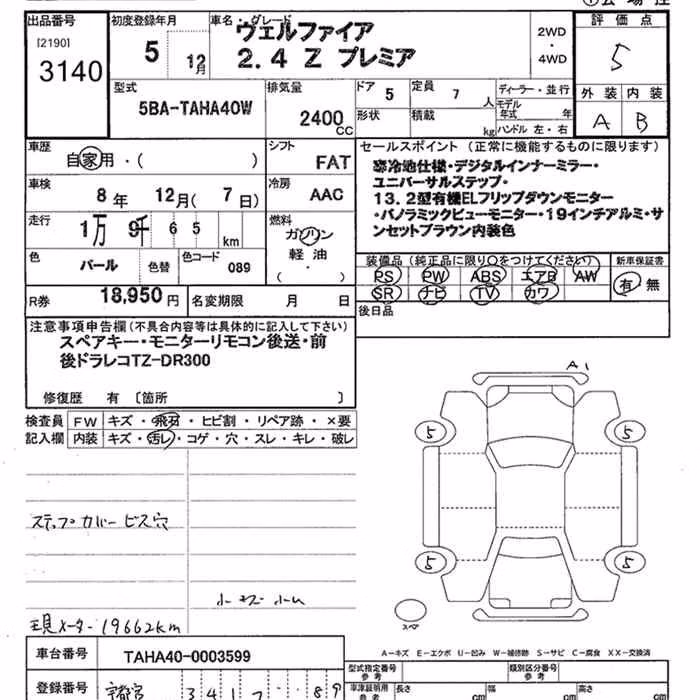 出品番号
[2190]
3140
初度登録年月
5 12月
車名・グレード
ヴェルファイア
2.4 Z プレミア
2WD
・
4WD
評価点
5
外装 内装
A B
型式
5BA-TAHA40W
排気量
2400 CC
ドア 5
定員 7 人
形状
積載 kg
ディーラー・並行
モデル年式 年
ハンドル 左・右
車歴
自家用・( )
シフト
FAT
車検
8年 12月( 7日)
冷房
AAC
走行
1万 9千 6 6 5 km
燃料
ガソリン
軽油
( ・ )
色
パール
色替
色コード
089
R券 18,950円
名変期限 月 日
セールスポイント (正常に機能するものに限ります)
寒冷地仕様・デジタルインナーミラー・
ユニバーサルステップ・
13.2型有機ELフリップダウンモニター
・パノラミックビューモニター・19インチアルミ・サ
ンセットブラウン内装色
装備品 (純正品に限り○をつけてください)
PS PW ABS エアB AW
SR ナビ TV カワ
新車保証書
有・無
後日品
注意事項申告欄(不具合内容等は具体的に記入して下さい)
スペアキー・モニターリモコン後送・前
後ドラレコTZ-DR300
修復歴 有 〔箇所 〕
検査員
記入欄
FW キズ・飛石・ヒビ割・リペア跡・×要
内装 キズ・汚レ・コゲ・穴・スレ・キレ・破レ
ステップカバー ビス穴
現メーター 19662km
A1
5 5
5 5
スペア
A-キズ E-エクボ U-凹み W-補修跡 S-サビ C-腐食 XX-交換済
車台番号
TAHA40-0003599
登録番号
宇都宮 3 4 1
型式指定番号
参考
類別区分番号
参考
車庫証明用
参考
長さ cm
幅 cm
高さ cm